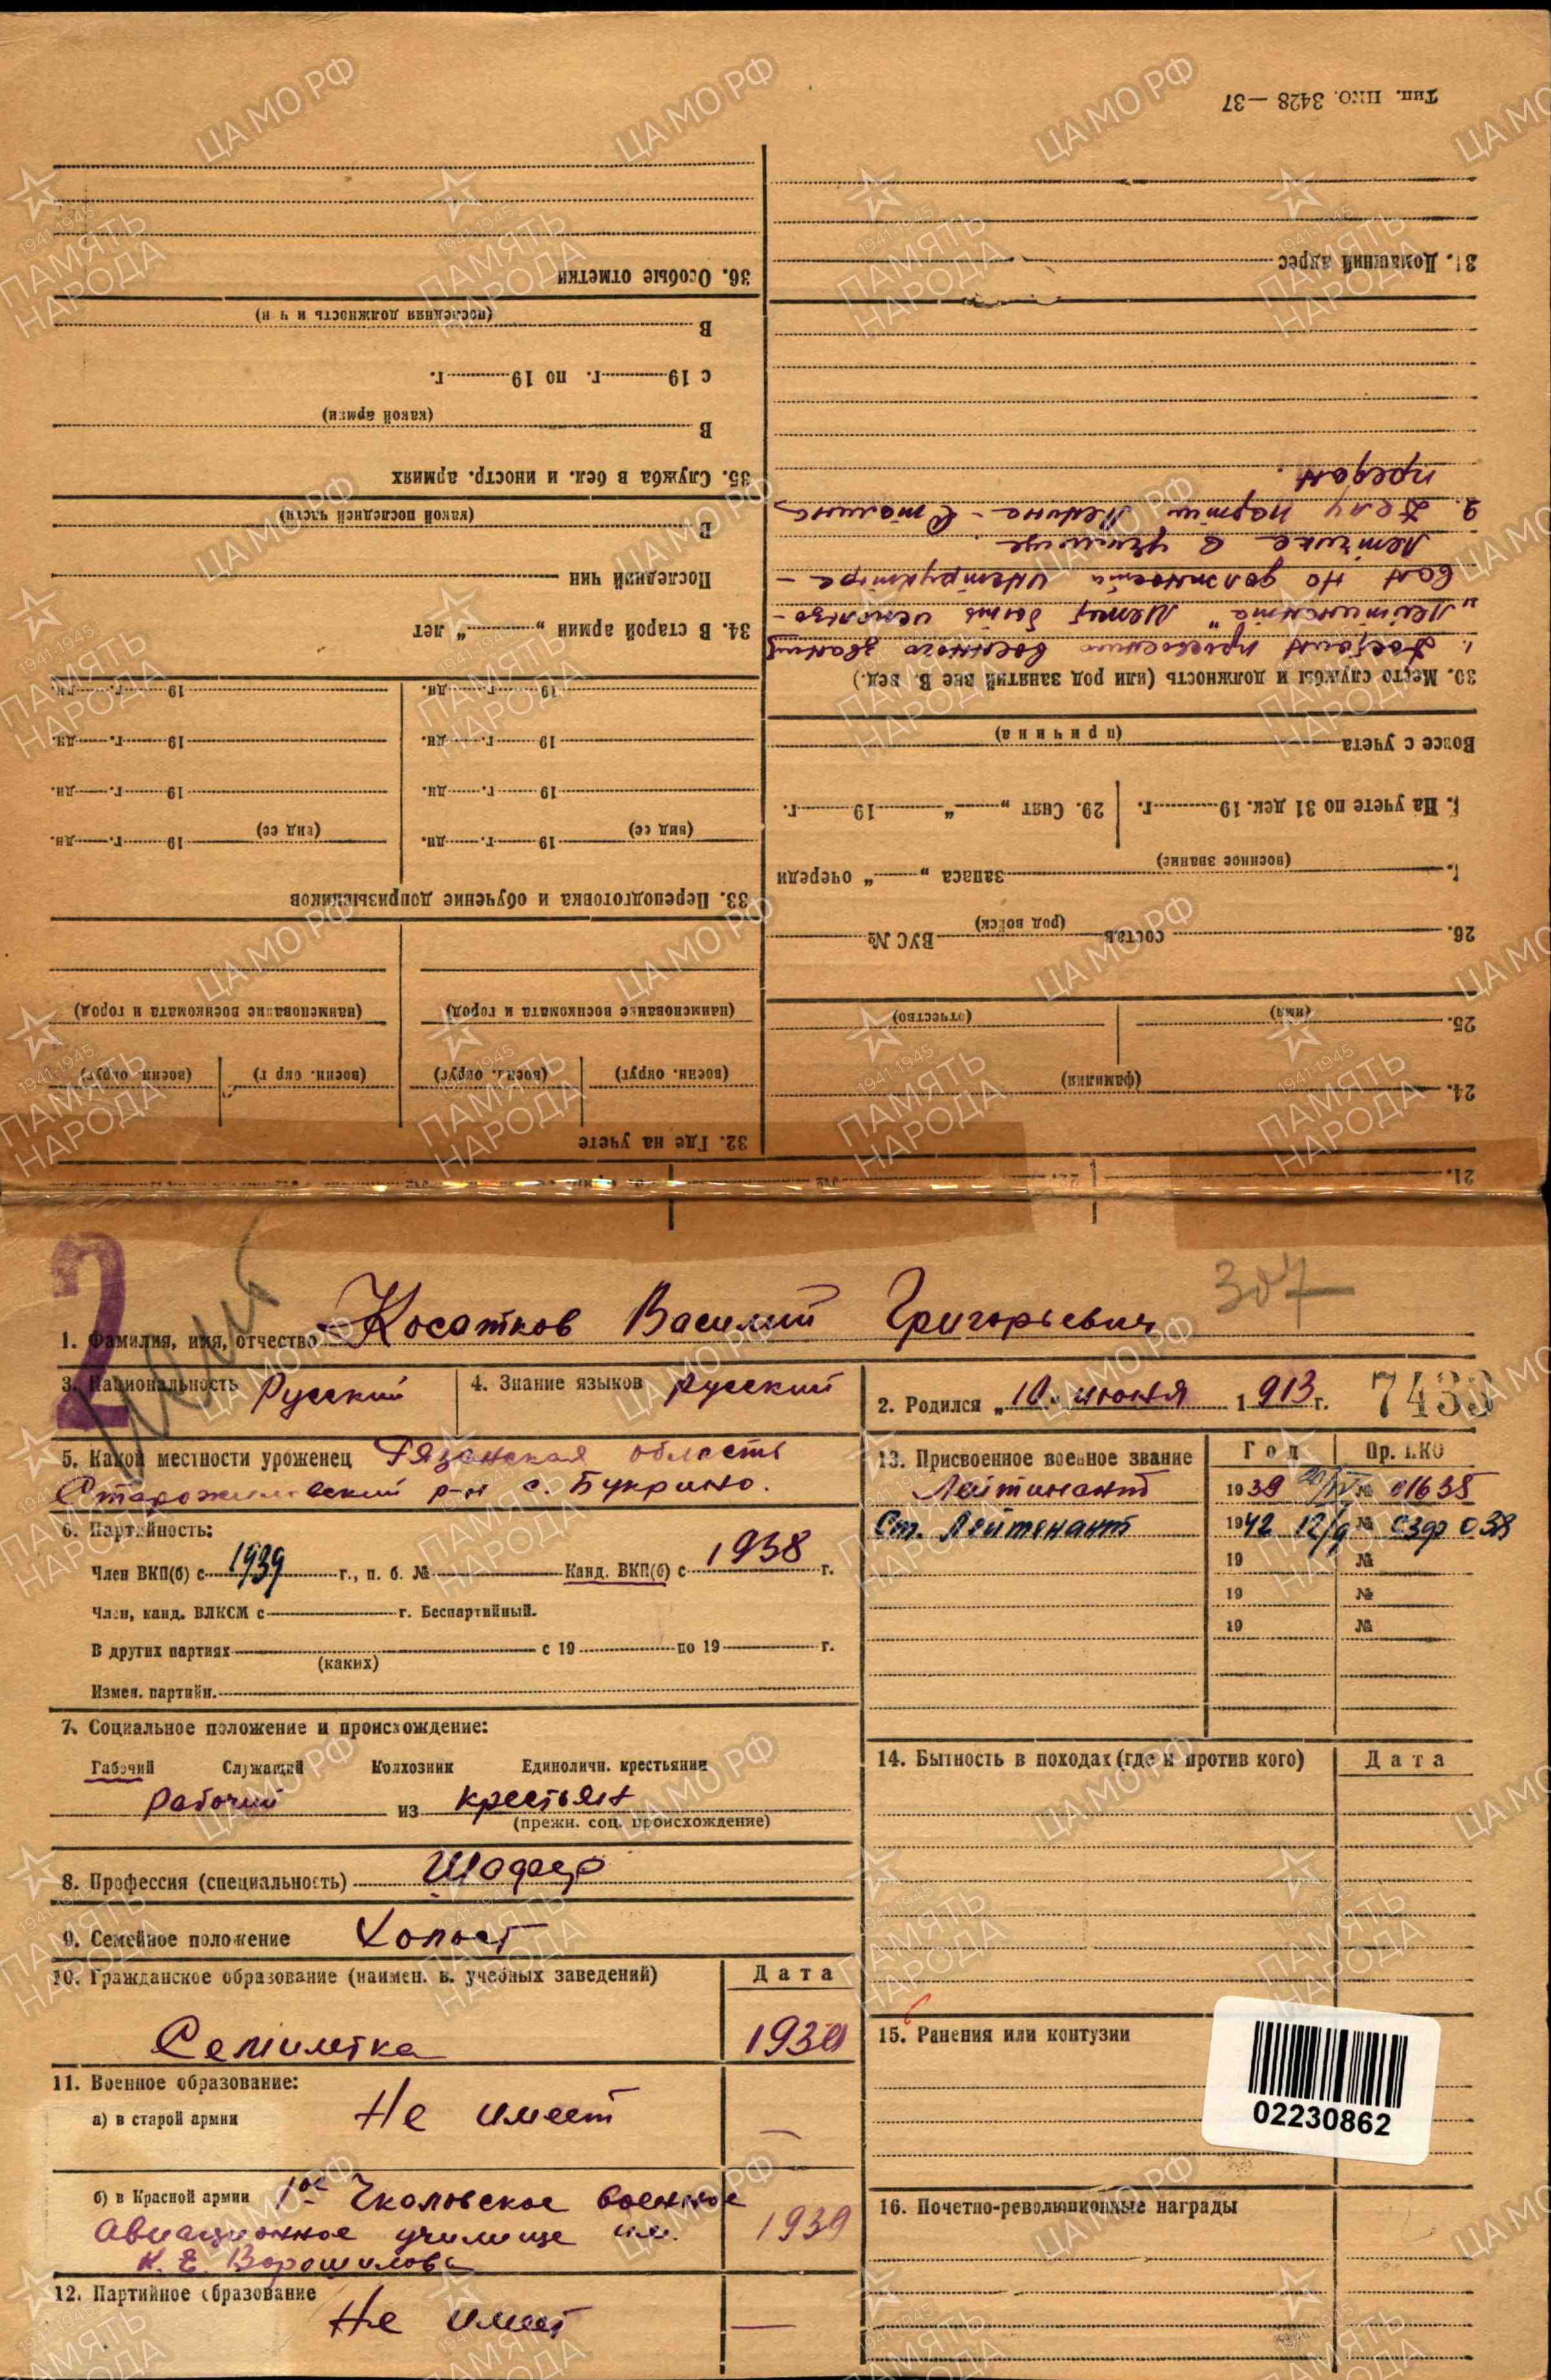 Тип. НКО. 3428—37
31. Домашний адрес
30. Место службы и должность (или род занятий вне В. вед.)
1. Достоин присвоению военного звания
„Лейтинанта“ Может быть использо-
ван на должности инструктора -
Летчика в училище.
2. Делу партии Ленина - Сталина
предан.
Вовсе с учета
(причина)
На учете по 31 дек. 19 г. 29. Снят „ “ 19 г.
запаса „ “ очереди
(военное звание)
26. состав ВУС №
(род войск)
25.
(имя) (отчество)
24.
(фамилия)
21.
22.
36. Особые отметки
В
(последняя должность и ч н)
с 19 г. по 19 г.
В
(какой армии)
35. Служба в бел. и иностр. армиях
В
(какой последней части)
Последний чин
34. В старой армии „ “ лет
19 г. дн. 19 г. дн.
19 г. дн. 19 г. дн.
19 г. дн. 19 г. дн.
(вид ее) 19 г. дн. (вид ее) 19 г. дн.
33. Переподготовка и обучение допризывников
(наименование военкомата и город) (наименование военкомата и город)
(военн. округ) (военн. округ) (военн. окр г) (военн. округ)
32. Где на учете
2
307
1. Фамилия, имя, отчество Косатков Василий Григорьевич
3. Национальность Русский 4. Знание языков русский
2. Родился „10“ июня 1913 г.
7433
5. Какой местности уроженец Рязанская область
Старожиловский р-н с. Букрино.
6. Партийность:
Член ВКП(б) с 1939 г., п. б. № Канд. ВКП(б) с 1938 г.
Член, канд. ВЛКСМ с г. Беспартийный.
В других партиях с 19 по 19 г.
(каких)
Измен. партийн.
7. Социальное положение и происхождение:
Рабочий Служащий Колхозник Единоличн. крестьянин
рабочий из крестьян
(прежн. соц. происхождение)
8. Профессия (специальность) Шофер
9. Семейное положение Холост
10. Гражданское образование (наимен. в. учебных заведений) Дата
Семилетка 1930
11. Военное образование:
а) в старой армии Не имеет —
б) в Красной армии 1ое Чкаловское военное
Авиационное училище им. 1939
К. Е. Ворошилова
12. Партийное образование
Не имеет —
13. Присвоенное военное звание Год Пр. НКО
Лейтинант 1939 20/IV № 01635
Ст. Лейтенант 1942 12/9 № 038
19 №
19 №
19 №
14. Бытность в походах (где и против кого) Дата
15. Ранения или контузии
02230862
16. Почетно-революционные награды
ЦАМО РФ
1941-1945
ПАМЯТЬ
НАРОДА